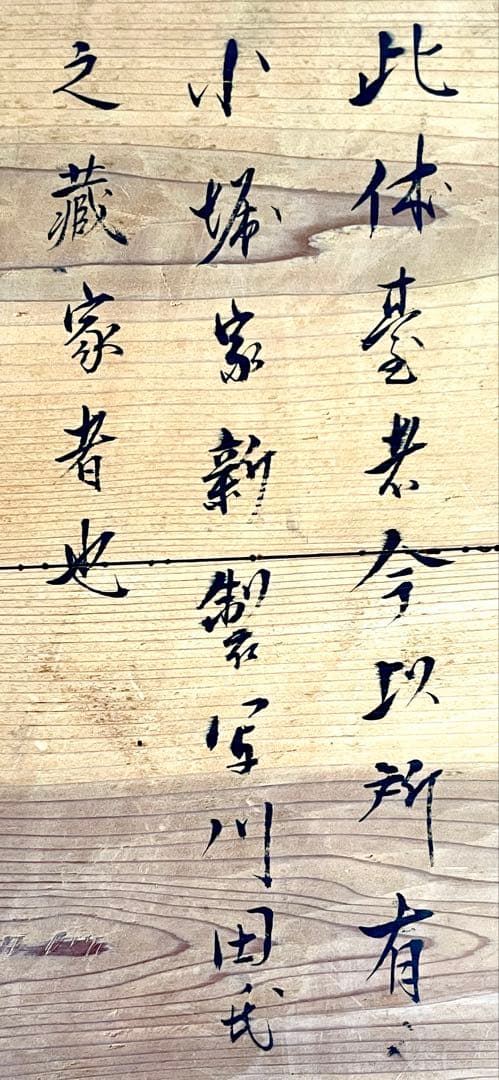 此体臺者今以所有
小堀家新製写川田氏
之藏家者也